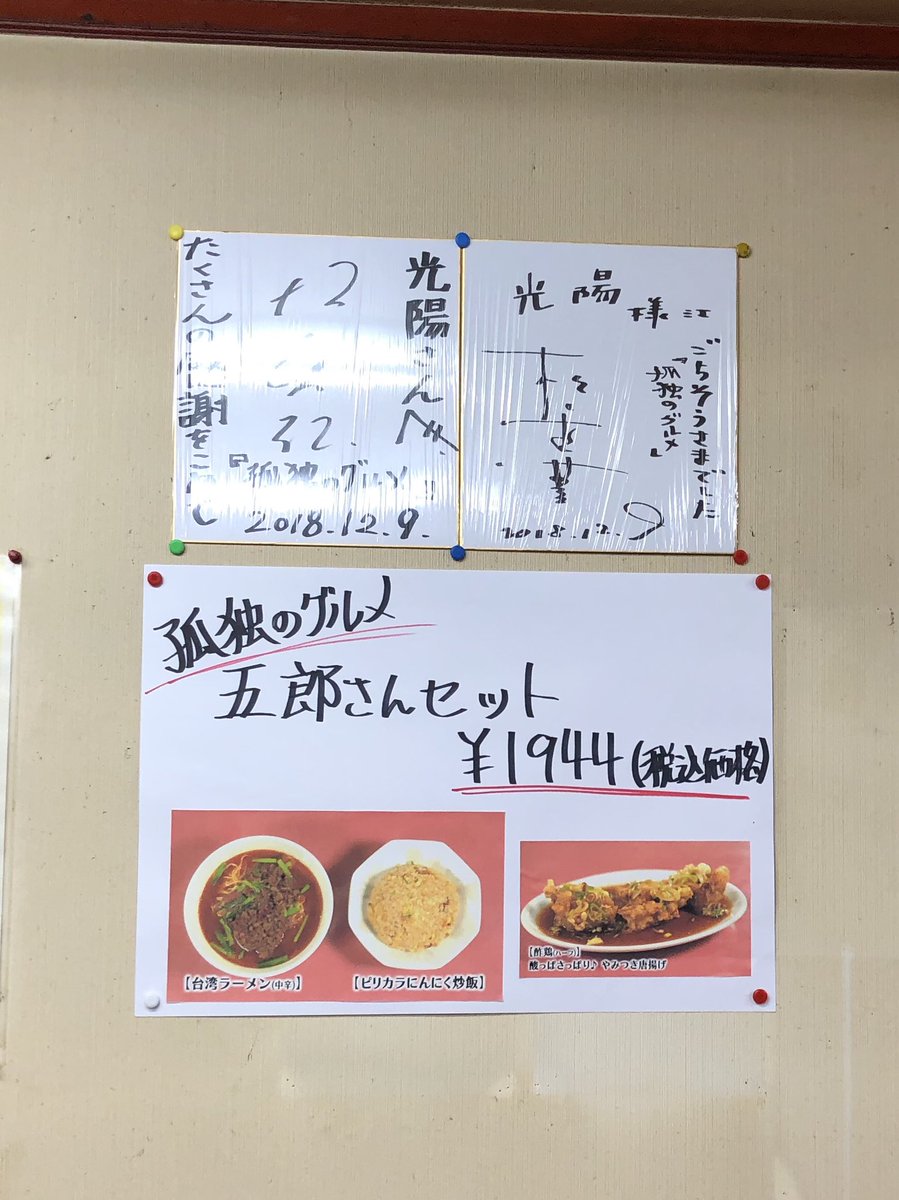 光陽さんへ
『孤独のグルメ』
2018.12.9.
たくさんの感謝をこめて
ごちそうさまでした
『孤独のグルメ』
光陽様江
2018.12.9
孤独のグルメ
五郎さんセット
¥1944(税込価格)
【台湾ラーメン(中辛)】
【ピリカラにんにく炒飯】
【酢鶏(ハーフ)】
酸っぱさっぱり♪ やみつき唐揚げ